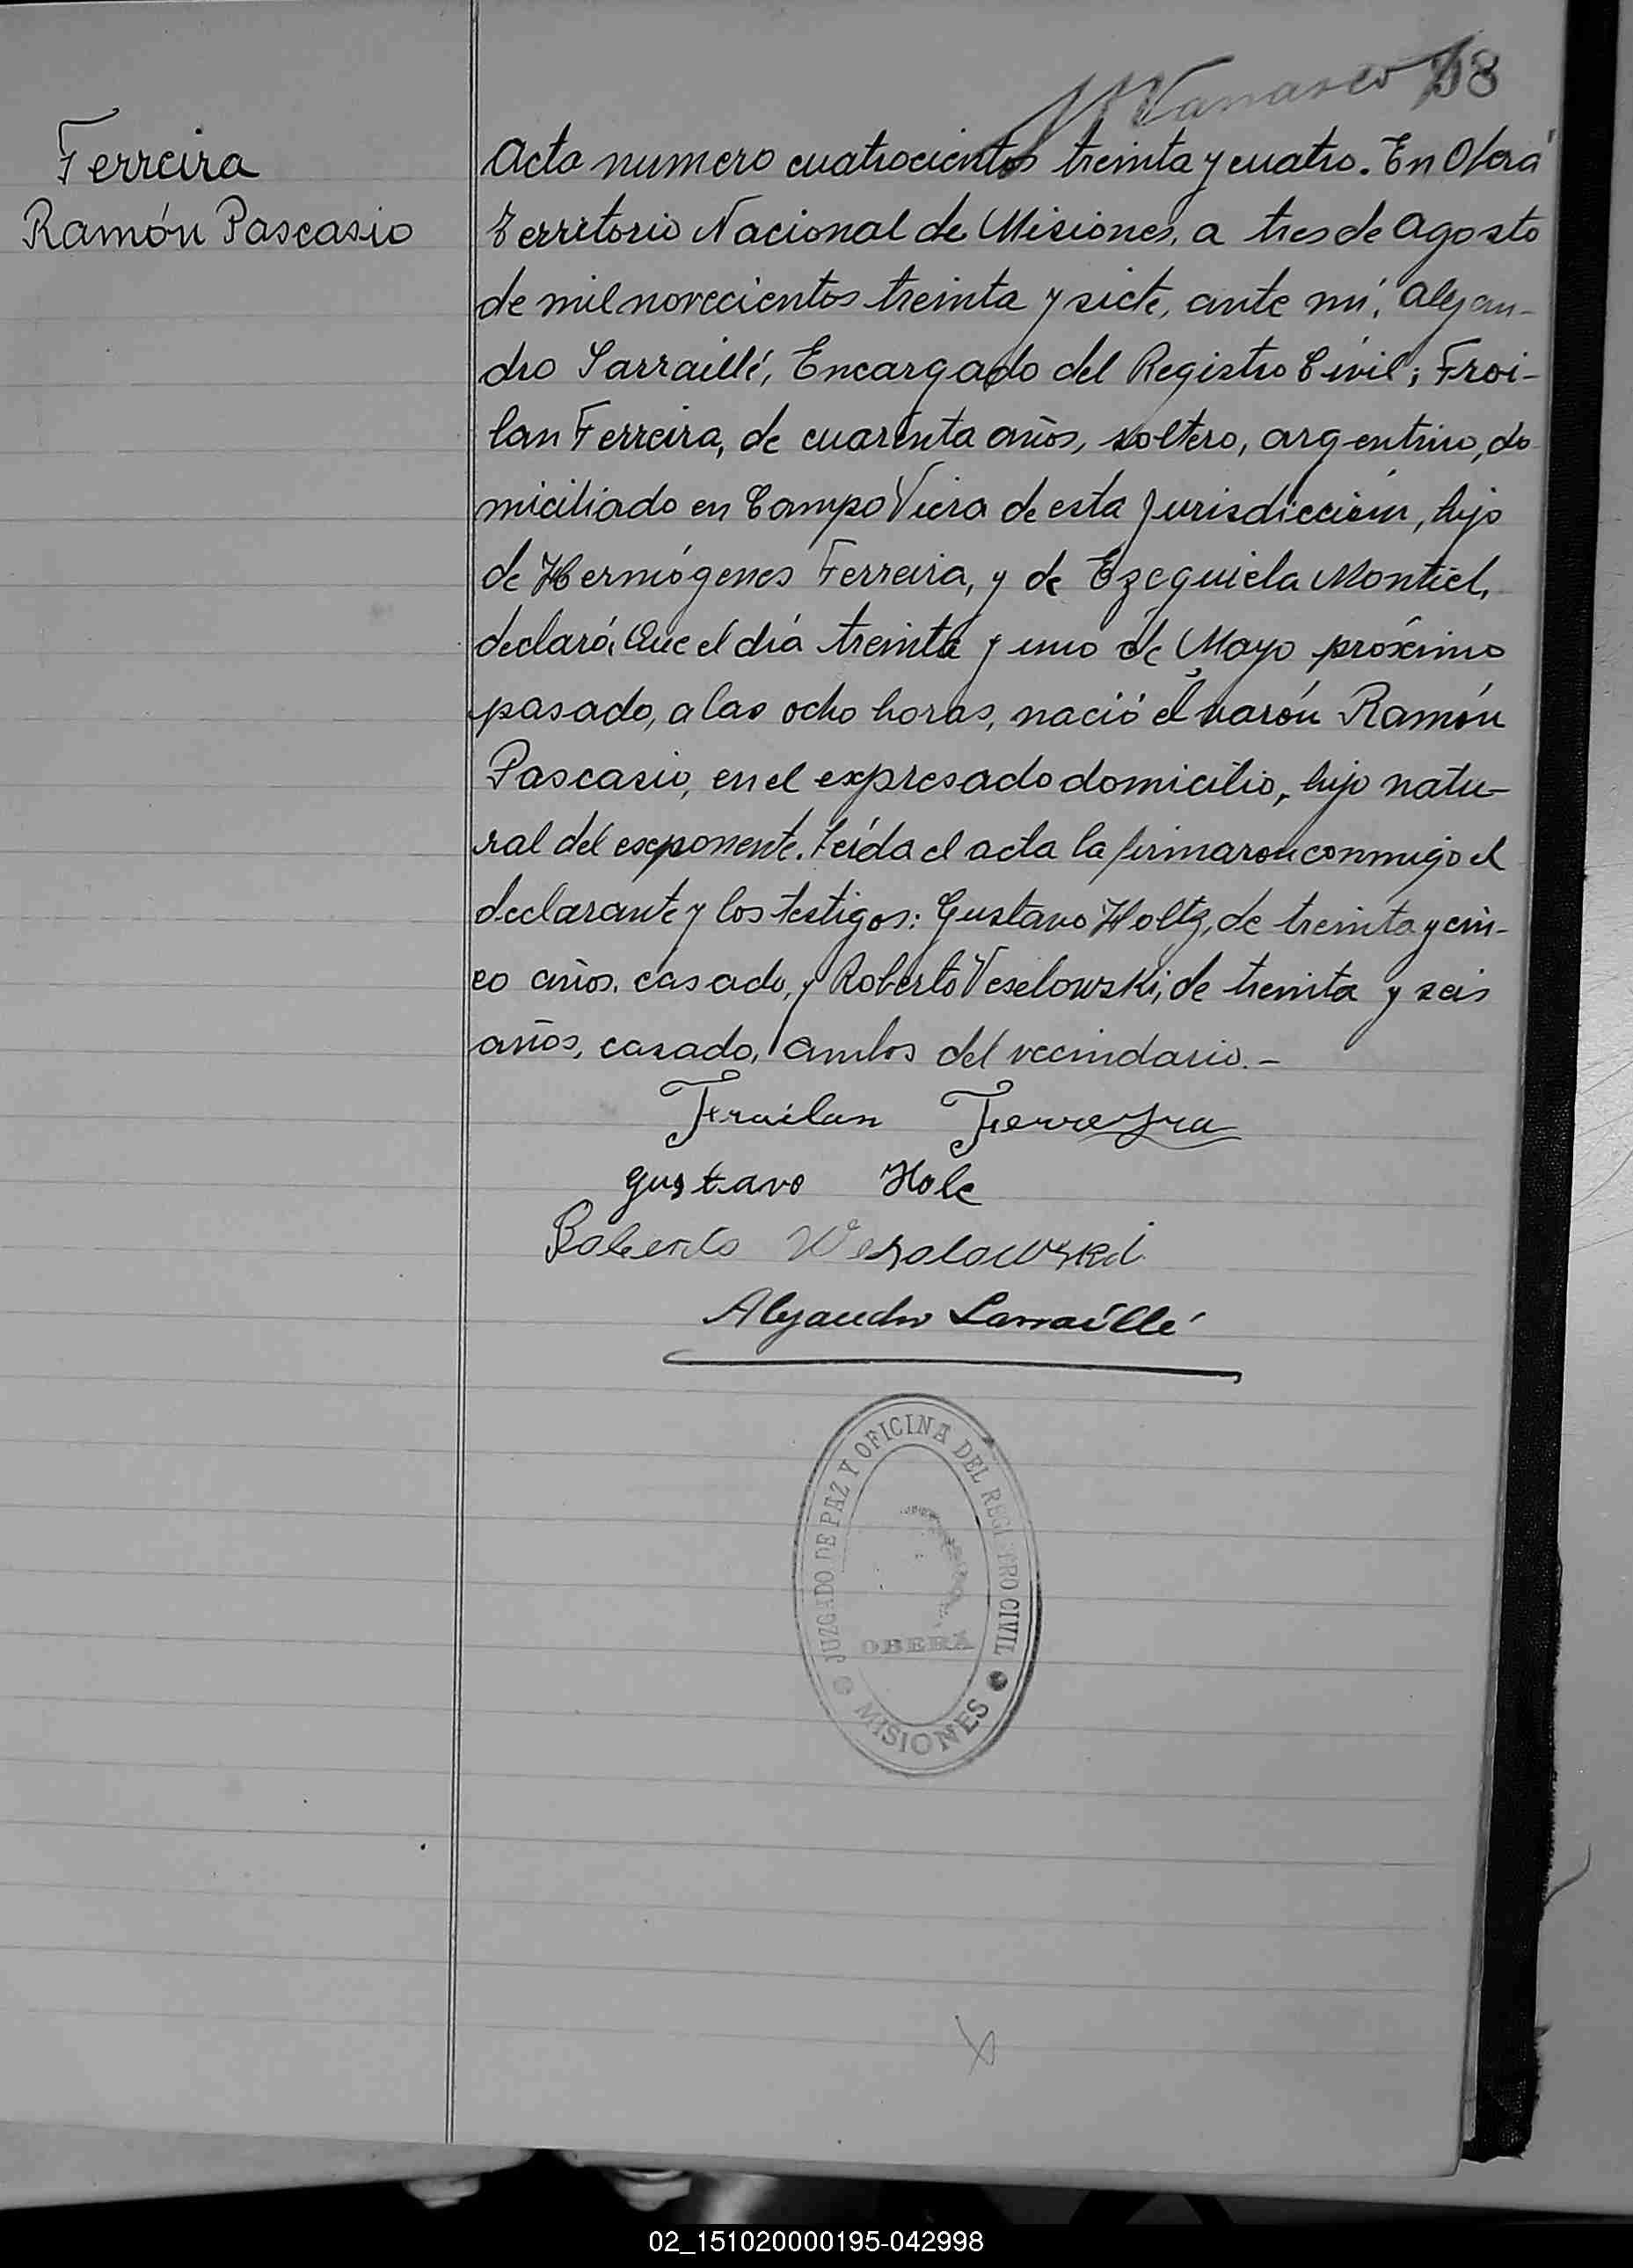 138
Ferreira
Ramón Pascasio
Acta numero cuatrocientos treinta y cuatro. En Oberá
Territorio Nacional de Misiones, a tres de Agosto
de mil novecientos treinta y siete, ante mí, Alejan-
dro Sarraillé, Encargado del Registro Civil; Froi-
lan Ferreira, de cuarenta años, soltero, argentino, do
miciliado en Campo Viera de esta Jurisdicción, hijo
de Hermógenes Ferreira, y de Ezequiela Montiel,
declaró: Que el día treinta y uno de Mayo próximo
pasado, a las ocho horas, nació el varón Ramón
Pascasio, en el expresado domicilio, hijo natu-
ral del exponente. Leída el acta la firmaron conmigo el
declarante y los testigos: Gustavo Holtz, de treinta y cin-
co años, casado, y Roberto Veselowski, de treinta y seis
años, casado, ambos del vecindario.-
Froilan Ferreyra
Gustavo Holc
Roberto Wesolowski
Alejandro Sarraillé
JUZGADO DE PAZ Y OFICINA DEL REGISTRO CIVIL
OBERÁ
MISIONES
02_151020000195-042998